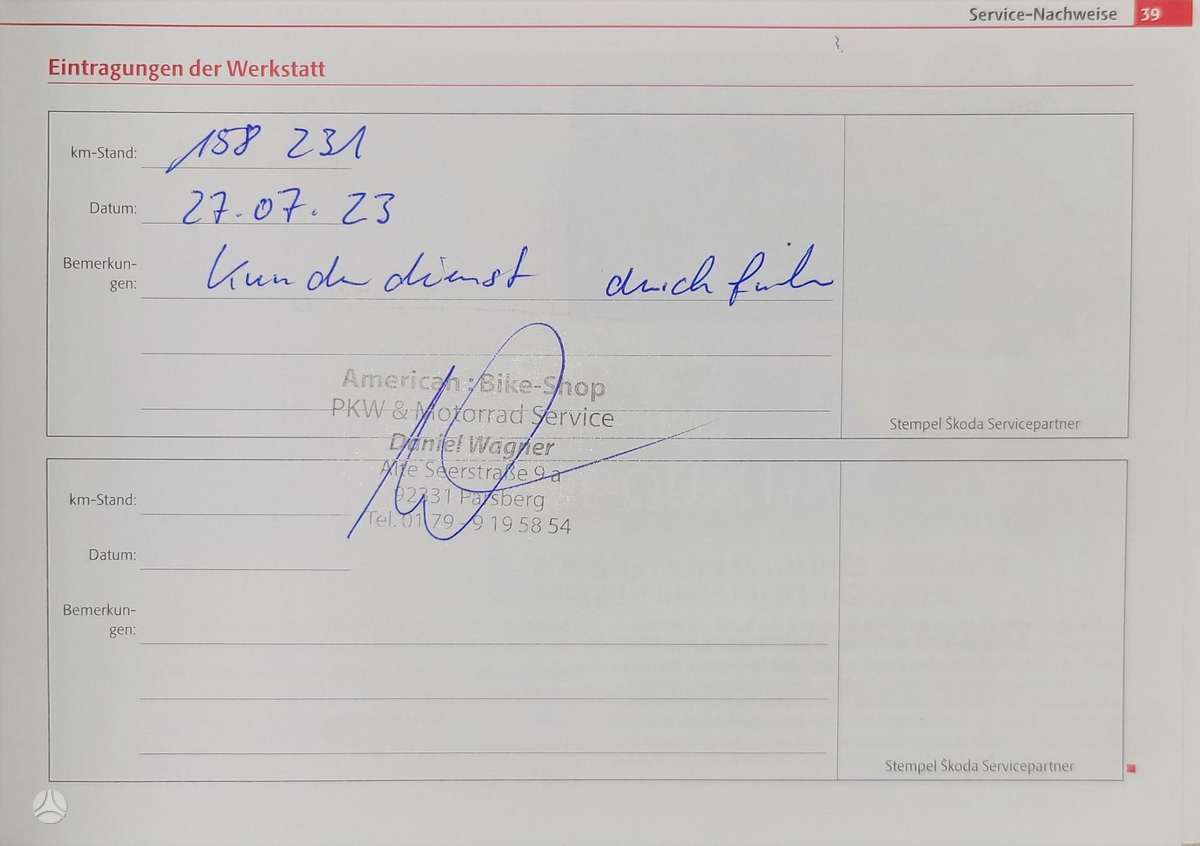 Service-Nachweise 39
Eintragungen der Werkstatt
km-Stand: 158 231
Datum: 27.07.23
Bemerkun-
gen: Kundendienst
American Bike-Shop
PKW & Motorrad Service
Daniel Wagner
Alte Seerstraße 9 a
92331 Parsberg
Tel. 01 79 - 9 19 58 54
Stempel Škoda Servicepartner
km-Stand:
Datum:
Bemerkun-
gen:
Stempel Škoda Servicepartner